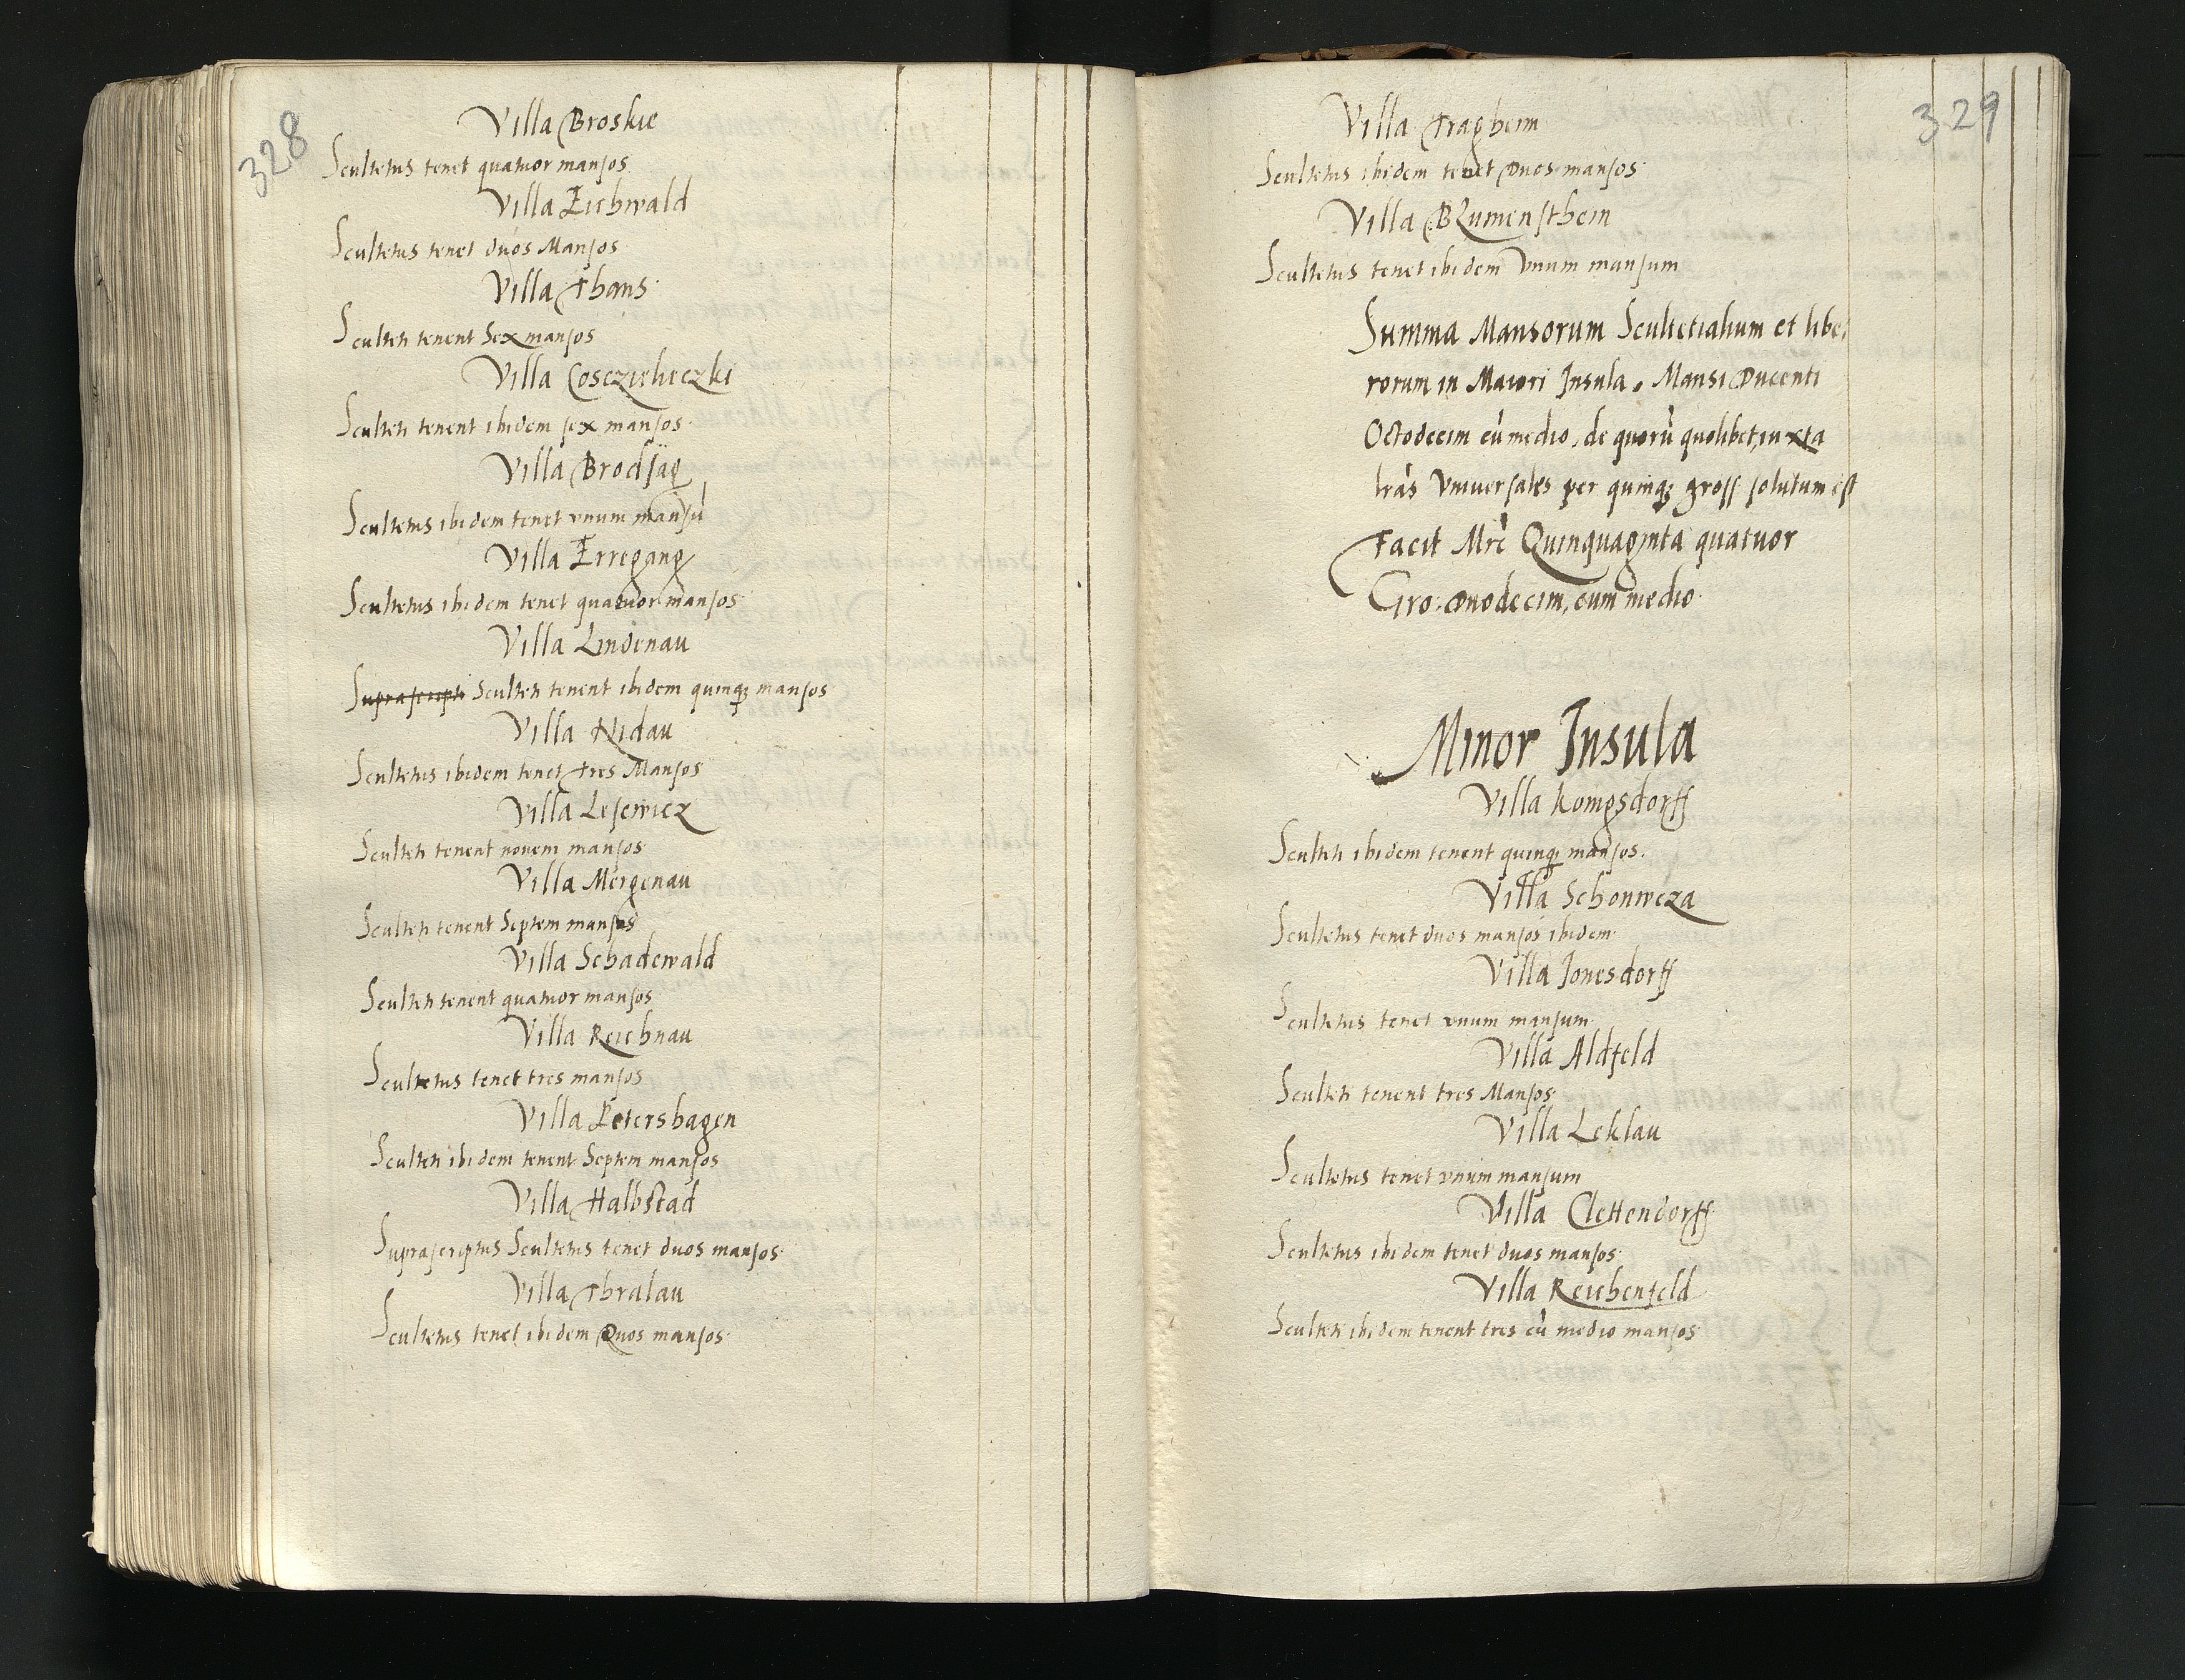 328
Villa Broskie
Scultetus tenet quatuor mansos
Villa Eichwald
Scultetus tenet duos Mansos
Villa Thans
Sculteti tenent Sex mansos
Villa Cosczieliczki
Sculteti tenent ibidem sex mansos
Villa Brodsäg
Scultetus ibidem tenet vnum mansù
Villa Erregang
Scultetus ibidem tenet quatuor mansos
Villa Lindenau
Suprascripti Sculteti tenent ibidem quinq; mansos
Villa Nidau
Scultetus ibidem tenet tres Mansos
Villa Lesewicz
Sculteti tenent novem mansos
Villa Mergenau
Sculteti tenent Septem mansos
Villa Schadewald
Sculteti tenent quatuor mansos
Villa Reichnau
Scultetus tenet tres mansos
Villa Petershagen
Sculteti ibidem tenent Septem mansos
Villa Halbstad
Suprascriptus Scultetus tenet duos mansos
Villa Thralau
Scultetus tenet ibidem Duos mansos
329
Villa Tragheim
Scultetus ibidem tenet Duos mansos
Villa Blumensthein
Scultetus tenet ibidem Vnum mansum
Summa Mansorum Scultetialium et libe,
rorum in Maiori Insula. Mansi Ducenti
Octodecim cù medio, de quorù quolibet, iuxta
lràs Vniversales per quinq; gross solutum est
Facit Mrc Quinquaginta quatuor
Gro: Duodecim, cum medio
Minor Insula
Villa Konigsdorff
Sculteti ibidem tenent quinq; mansos.
Villa Schonweza
Scultetus tenet duos mansos ibidem
Villa Jonesdorff
Scultetus tenet vnum mansum
Villa Aldfeld
Sculteti tenent tres Mansos
Villa Leklau
Scultetus tenet vnum mansum
Villa Clettendorff
Scultetus ibidem tenet duos mansos
Villa Reichenfeld
Sculteti ibidem tenent tres cù medio mansos